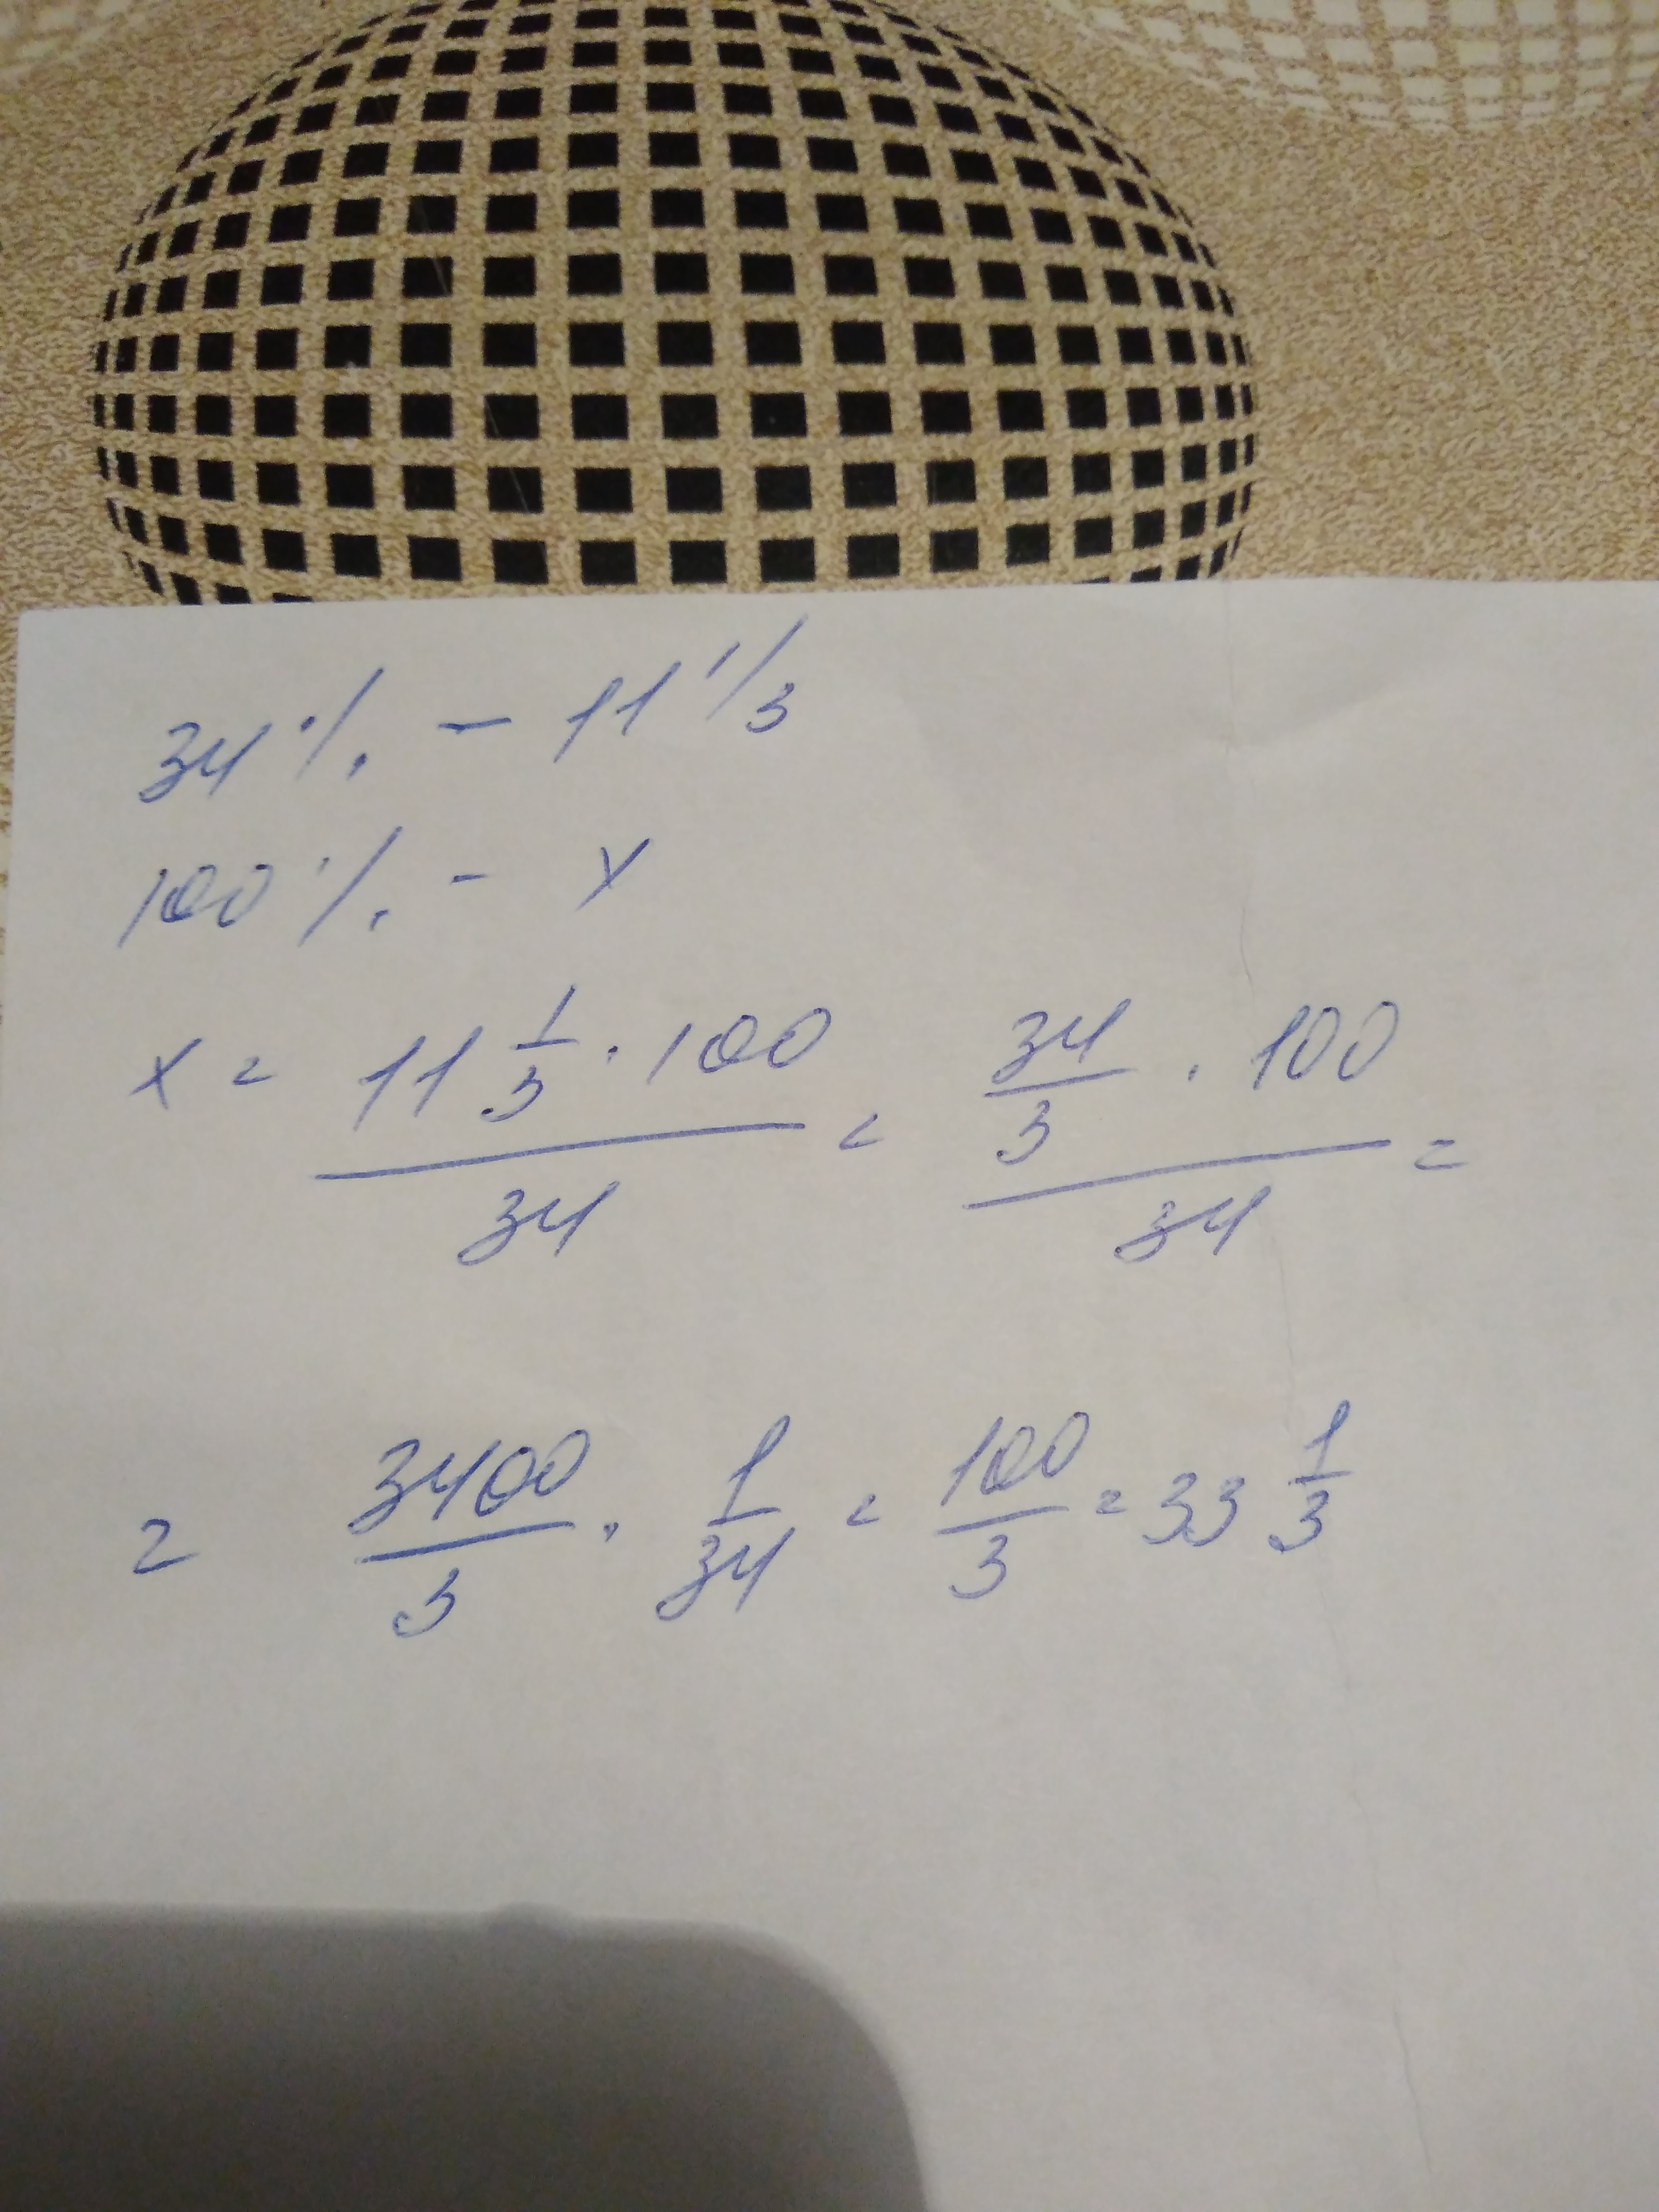 34% - 11 1/3
100% - x
x = (11 1/3 · 100)/34 = (34/3 · 100)/34 =
= 3400/3 · 1/34 = 100/3 = 33 1/3